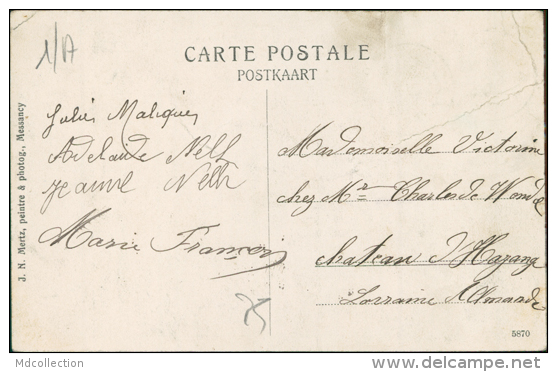 1/A
CARTE POSTALE
POSTKAART
J. N. Mertz, peintre & photog., Messancy
Julie
Adelaide Nelh
Jeanne Nelh
Marie François
Mademoiselle Victorine
chez Mr Charles de Wendel
chateau d'Hayange
Lorraine
5870
Mdcollection
www.delcampe.net